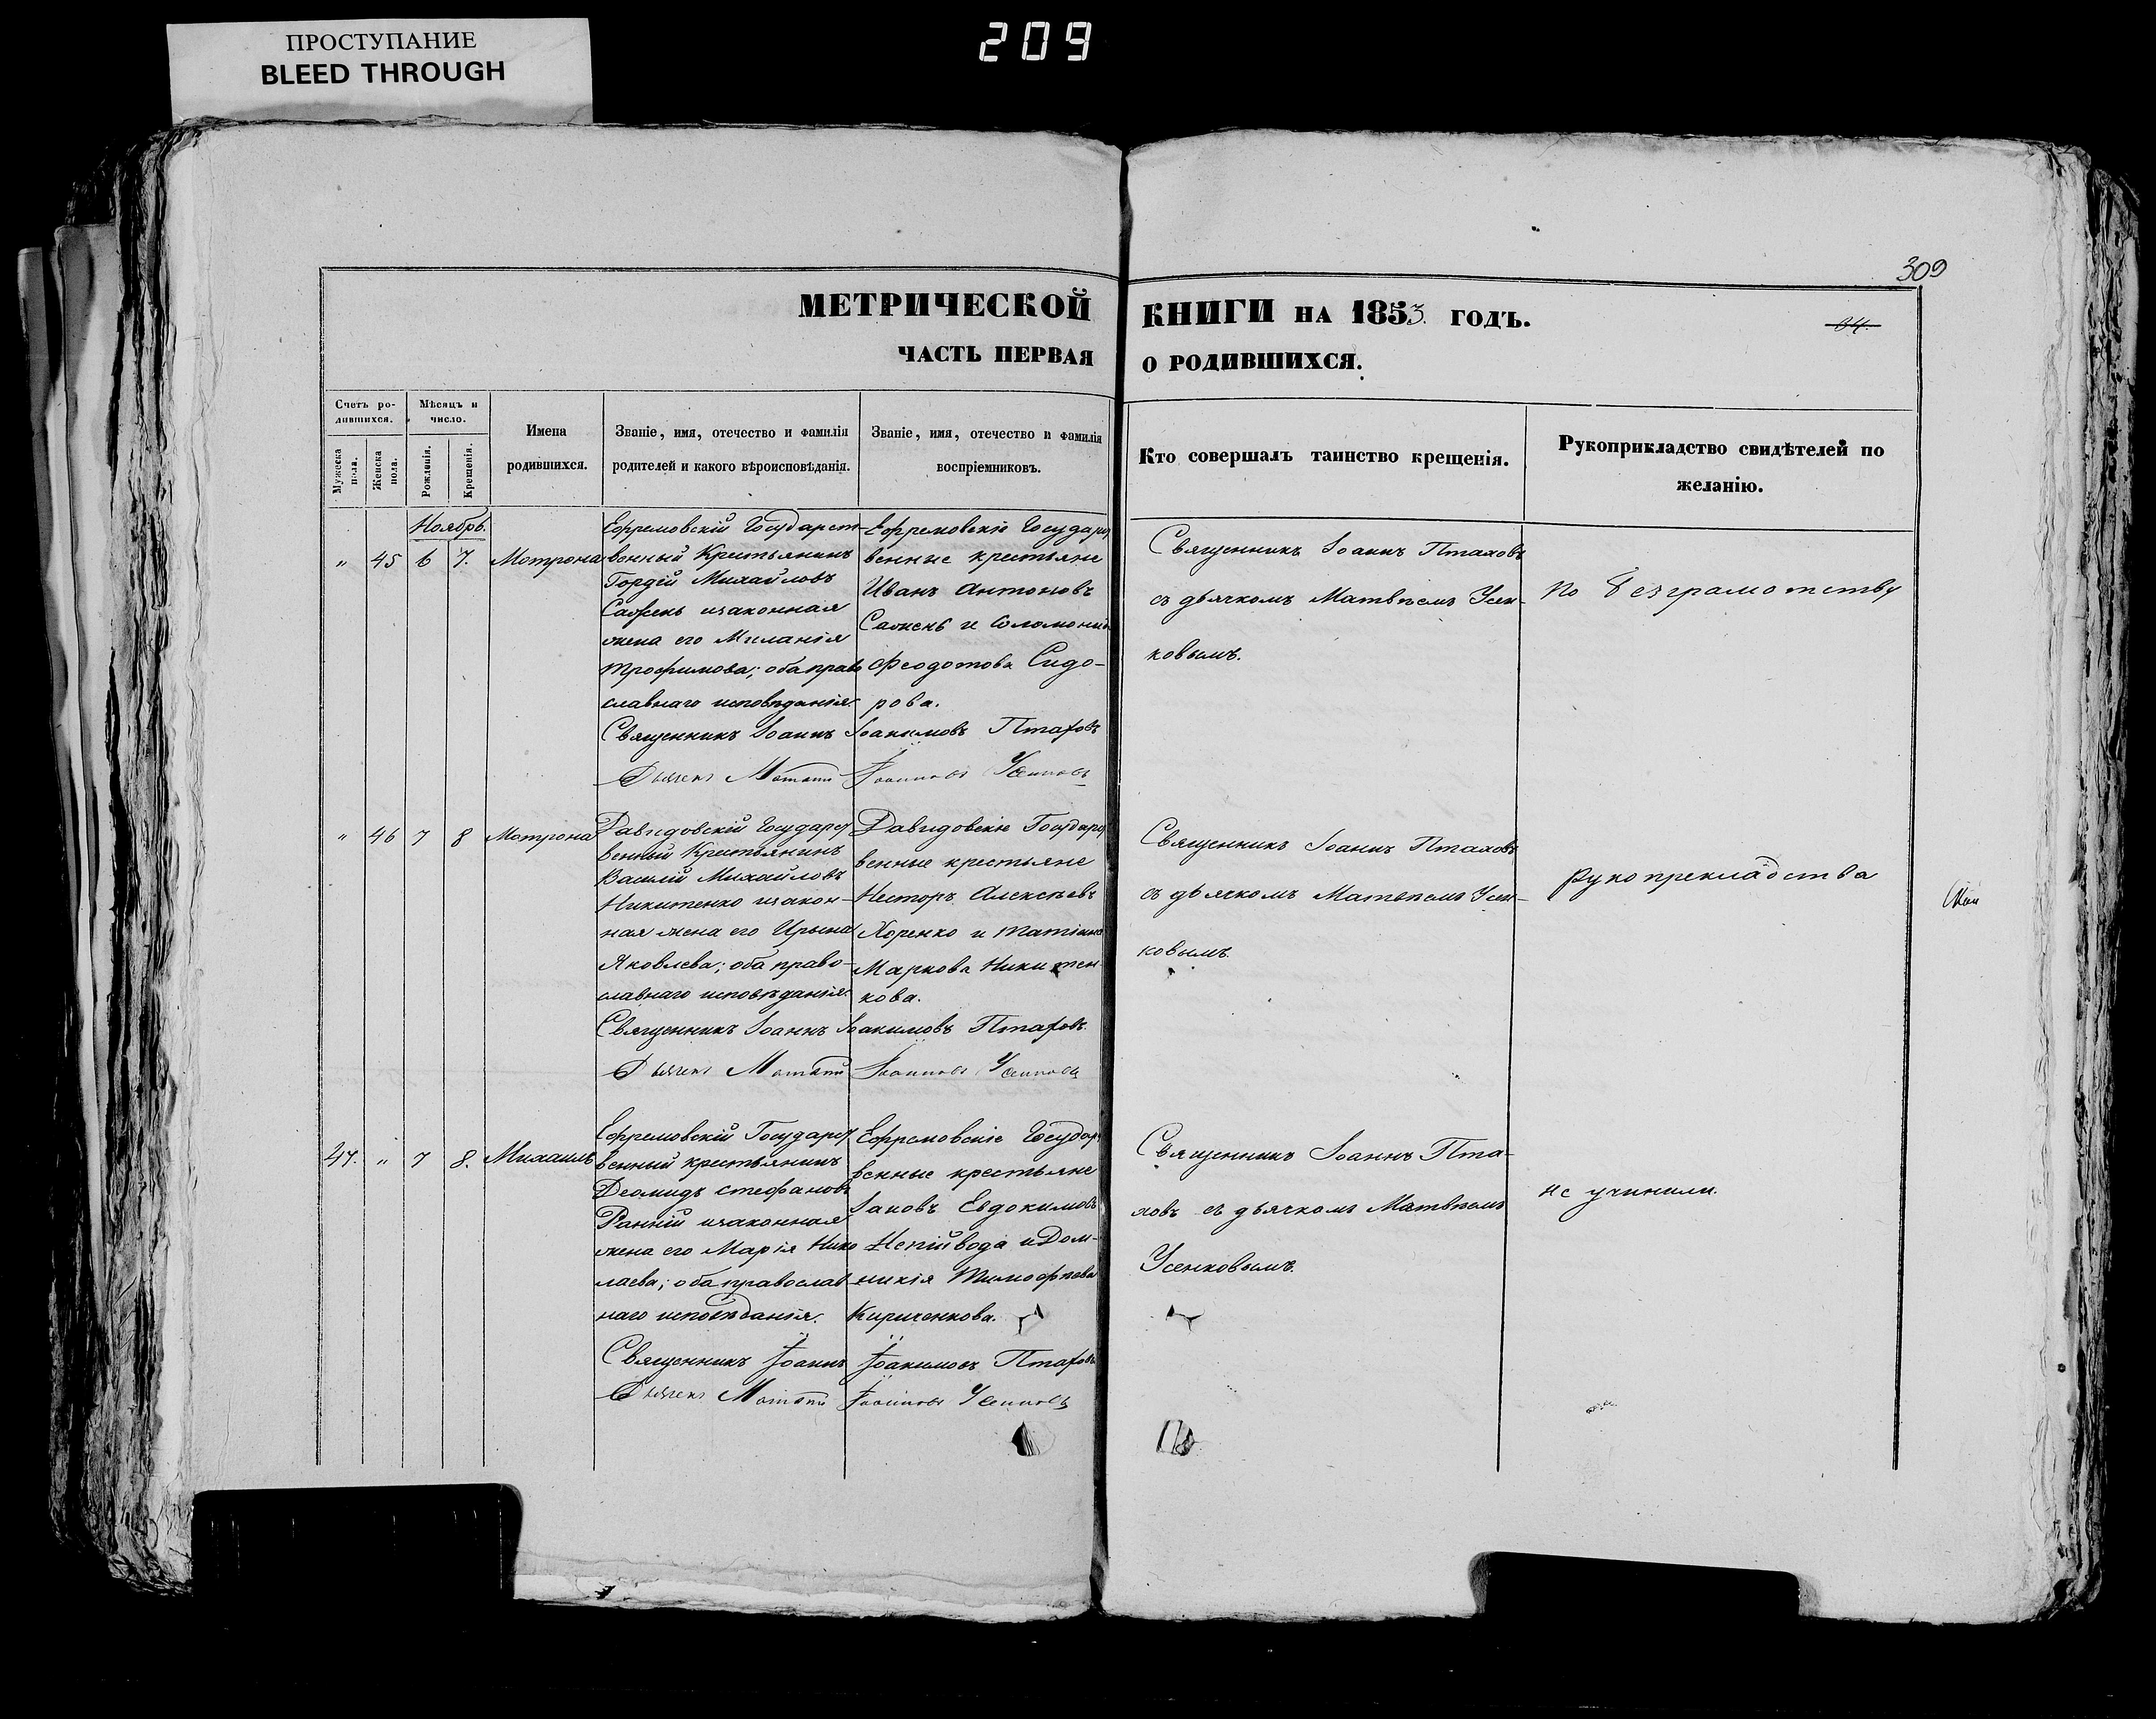 ПРОСТУПАНИЕ
BLEED THROUGH
209
309
МЕТРИЧЕСКОЙ КНИГИ НА 1853. ГОДЪ.
34.
ЧАСТЬ ПЕРВАЯ О РОДИВШИХСЯ.
Счетъ ро-
дившихся.
Мѣсяцъ и
число.
Мужеска
пола.
Женска
пола.
Рожденія.
Крещенія.
Имена
родившихся.
Званіе, имя, отечество и фамилія
родителей и какого вѣроисповѣданія.
Званіе, имя, отечество и фамилія
воспріемниковъ.
Кто совершалъ таинство крещенія.
Рукоприкладство свидѣтелей по
желанію.
Ноябрь.
" 45 6 7. Мотрона
Ефремовскій Государст-
венный Крестьянинъ
Гордѣй Михайловъ
Сажень изаконная
жена его Миланія
Трофимова; оба право
славнаго исповѣданія.
Ефремовскіе Государст
венные крестьяне
Иванъ Антоновъ
Сажень и Соломонида
Феодотова Сидо-
рова.
Священникъ Іоаннъ Іоакимовъ Птаховъ
Дьячекъ Матѳій Іоанновъ Усенковъ
Священникъ Іоаннъ Птаховъ
съ дьячкомъ Матвѣемъ Усен-
ковымъ.
По безграмотству
" 46 7 8 Мотрона
Давидовскій Государст
венный Крестьянинъ
Василій Михайловъ
Никитенко изакон-
ная жена его Ирына
Яковлева; оба право-
славнаго исповѣданія.
Давидовскіе Государст
венные крестьяне
Несторъ Алексѣевъ
Хоренко и Татіана
Маркова Никитен-
кова.
Священникъ Іоаннъ Іоакимовъ Птаховъ.
Дьячекъ Матѳій Іоанновъ Усенковъ
Священникъ Іоаннъ Птаховъ
съ дьячкомъ Матвѣемъ Усен-
ковымъ.
рукопрекладства
47. " 7 8. Михаилъ
Ефремовскій Государст
венный крестьянинъ
Деомидъ Стефановъ
Ранній изаконная
жена его Марія Нико
лаева; оба православ
наго исповѣданія.
Ефремовскіе Государ
венные крестьяне
Іаковъ Евдокимовъ
Непійвода и Дом-
никія Тимофѣева
Кириченкова.
Священникъ Іоаннъ Іоакимовъ Птаховъ
Дьячекъ Матѳій Іоанновъ Усенковъ
Священникъ Іоаннъ Пта-
ховъ съ дьячкомъ Матвѣемъ
Усенковымъ.
не учинили.